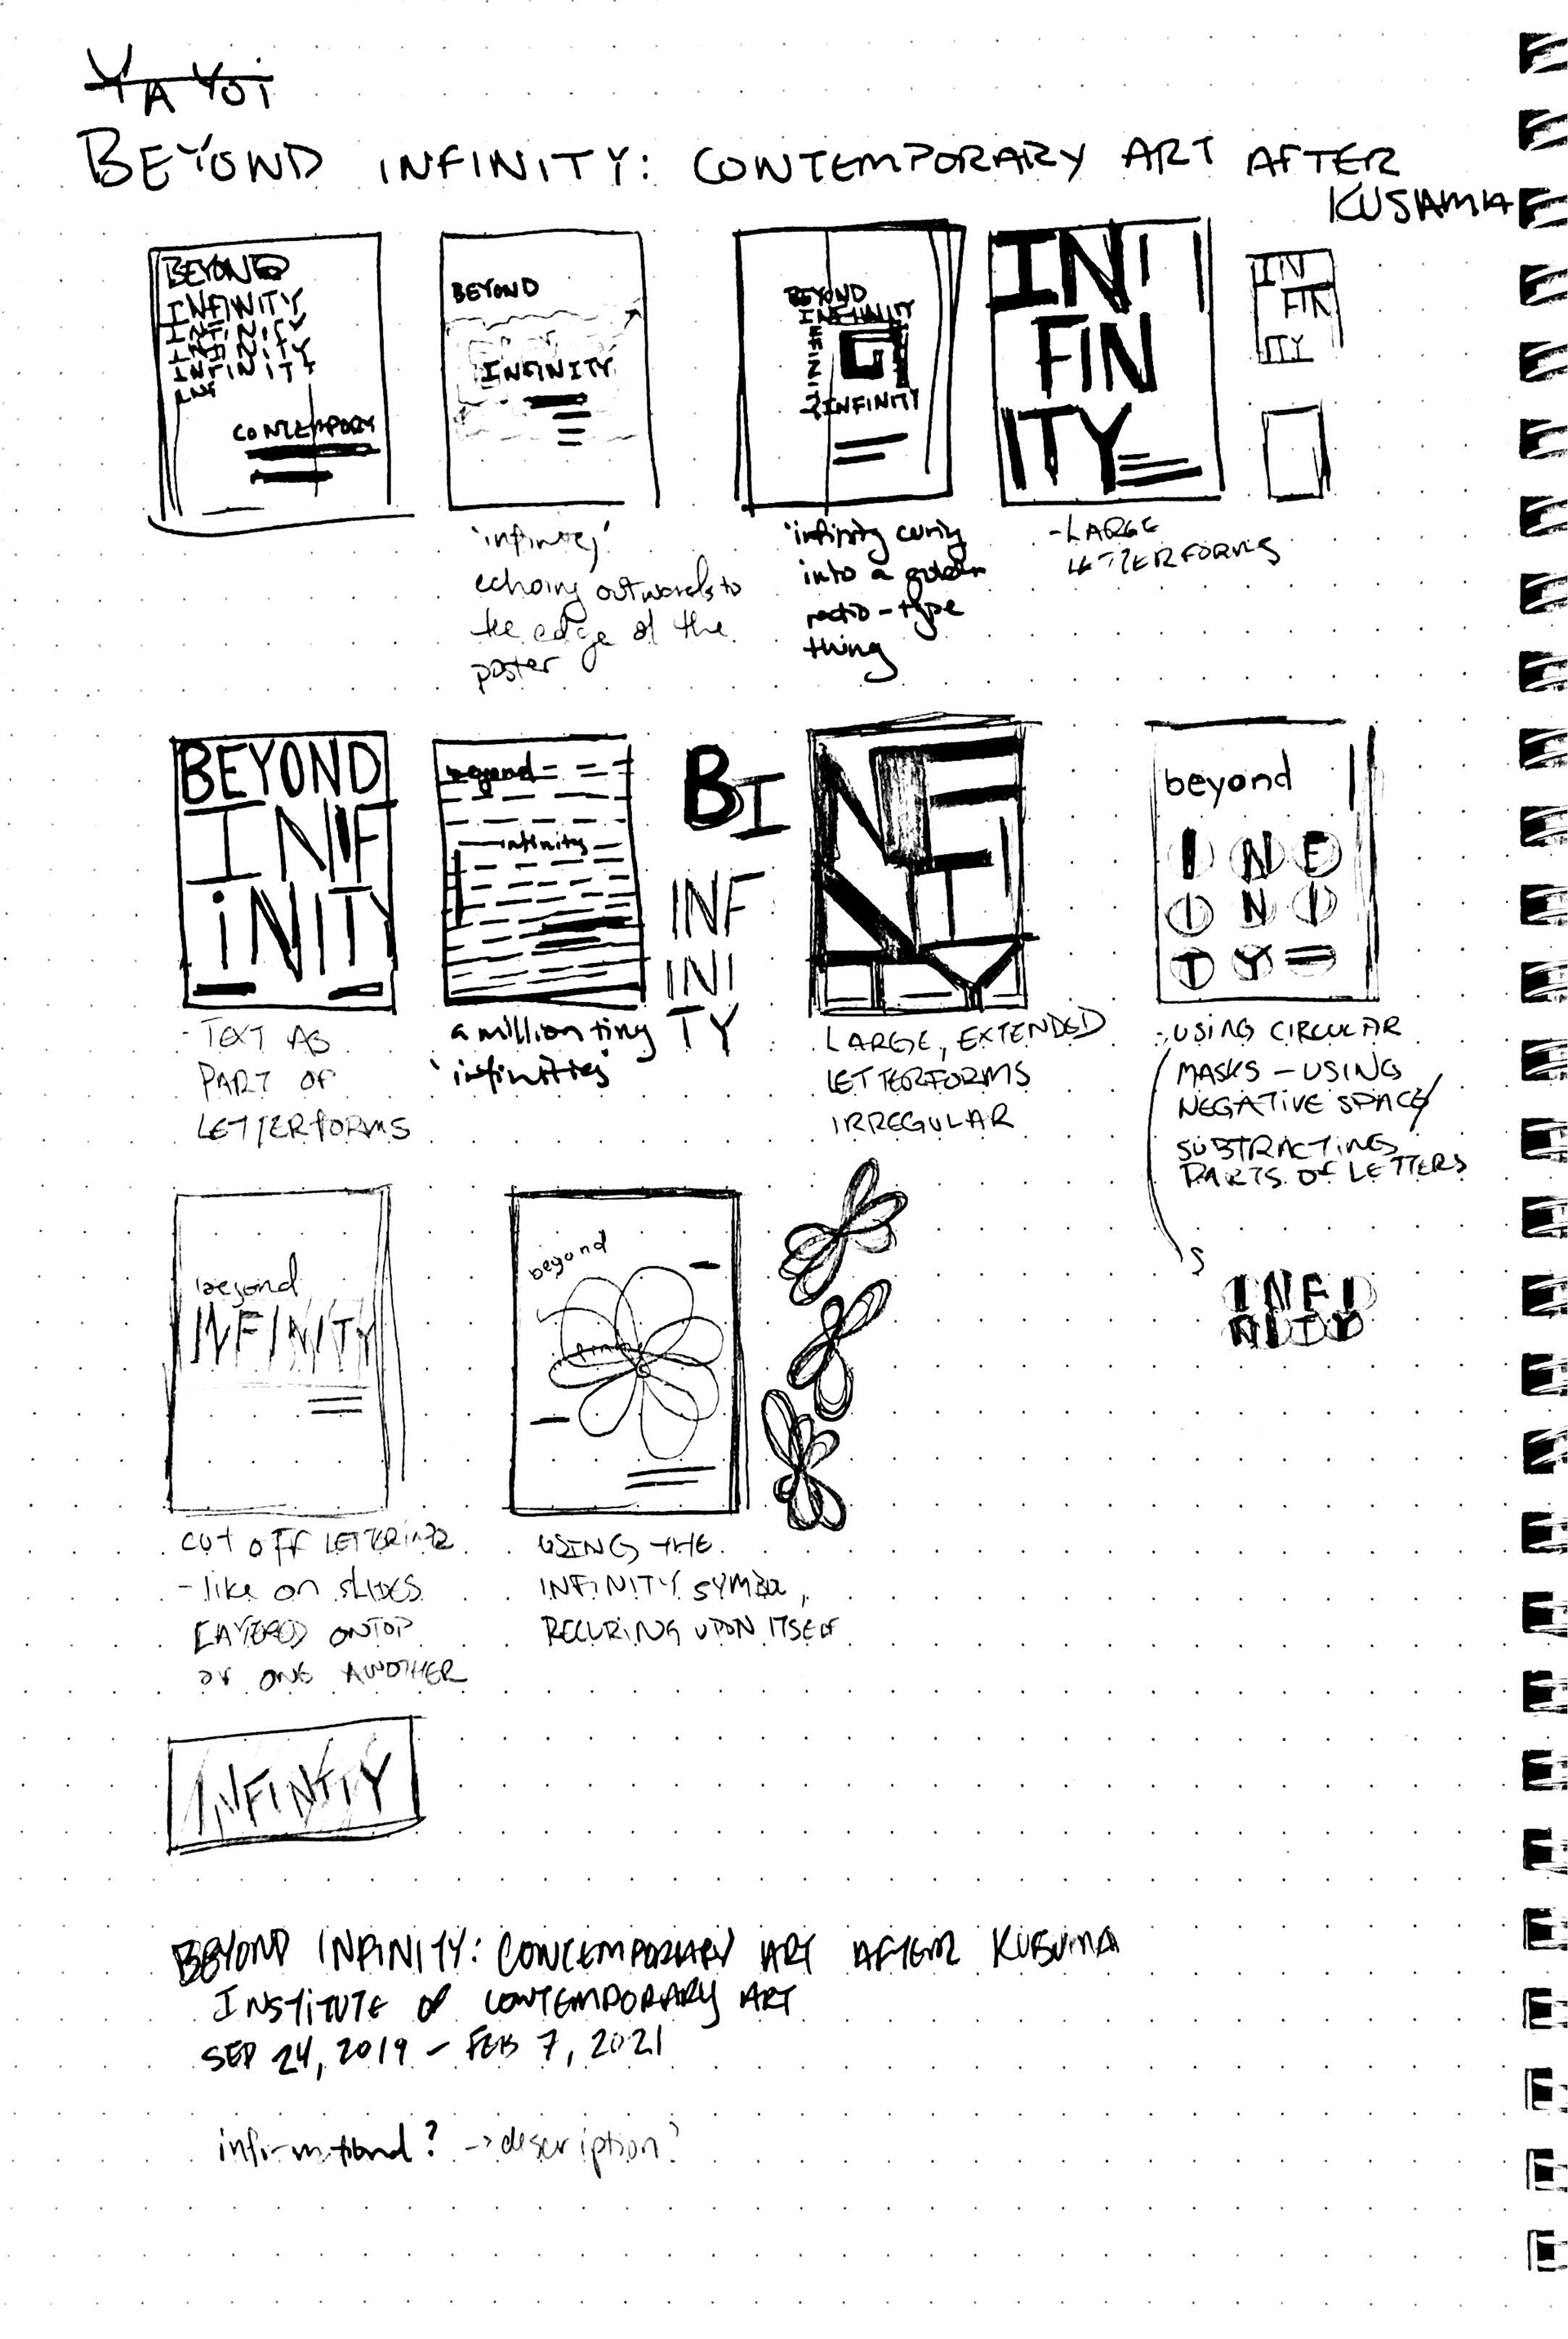 YAYOI
BEYOND INFINITY: CONTEMPORARY ART AFTER
KUSAMA
BEYOND
INFINITY
INFINITY
INFINITY
INFINITY
INF
CONTEMPORY
BEYOND
INFINITY
BEYOND
INFINITY
INFINITY
INFINITY
IN
FIN
ITY
IN
FIN
ITY
'infinity'
echoing outwards to
the edge of the
poster
'infinity curling
into a golden
ratio-type
thing
-LARGE
LETTERFORMS
BEYOND
INF
iNITY
beyond
infinity
BI
INF
INI
TY
INFI
NI
TY
beyond
INF
INI
TY
- TEXT AS
PART OF
LETTERFORMS
a million tiny
'infinities'
LARGE, EXTENDED
LETTERFORMS
IRREGULAR
- USING CIRCULAR
MASKS - USING
NEGATIVE SPACE/
SUBTRACTING
PARTS OF LETTERS
INFI
NITY
beyond
INFINITY
beyond
CUT OFF LETTERING
- like on SLIDES
LAYERED ONTOP
OF ONE ANOTHER
USING THE
INFINITY SYMBOL,
RECURING UPON ITSELF
INFINITY
BEYOND INFINITY: CONTEMPORARY ART AFTER KUSUMA
INSTITUTE OF CONTEMPORARY ART
SEP 24, 2019 - FEB 7, 2021
? -> description?